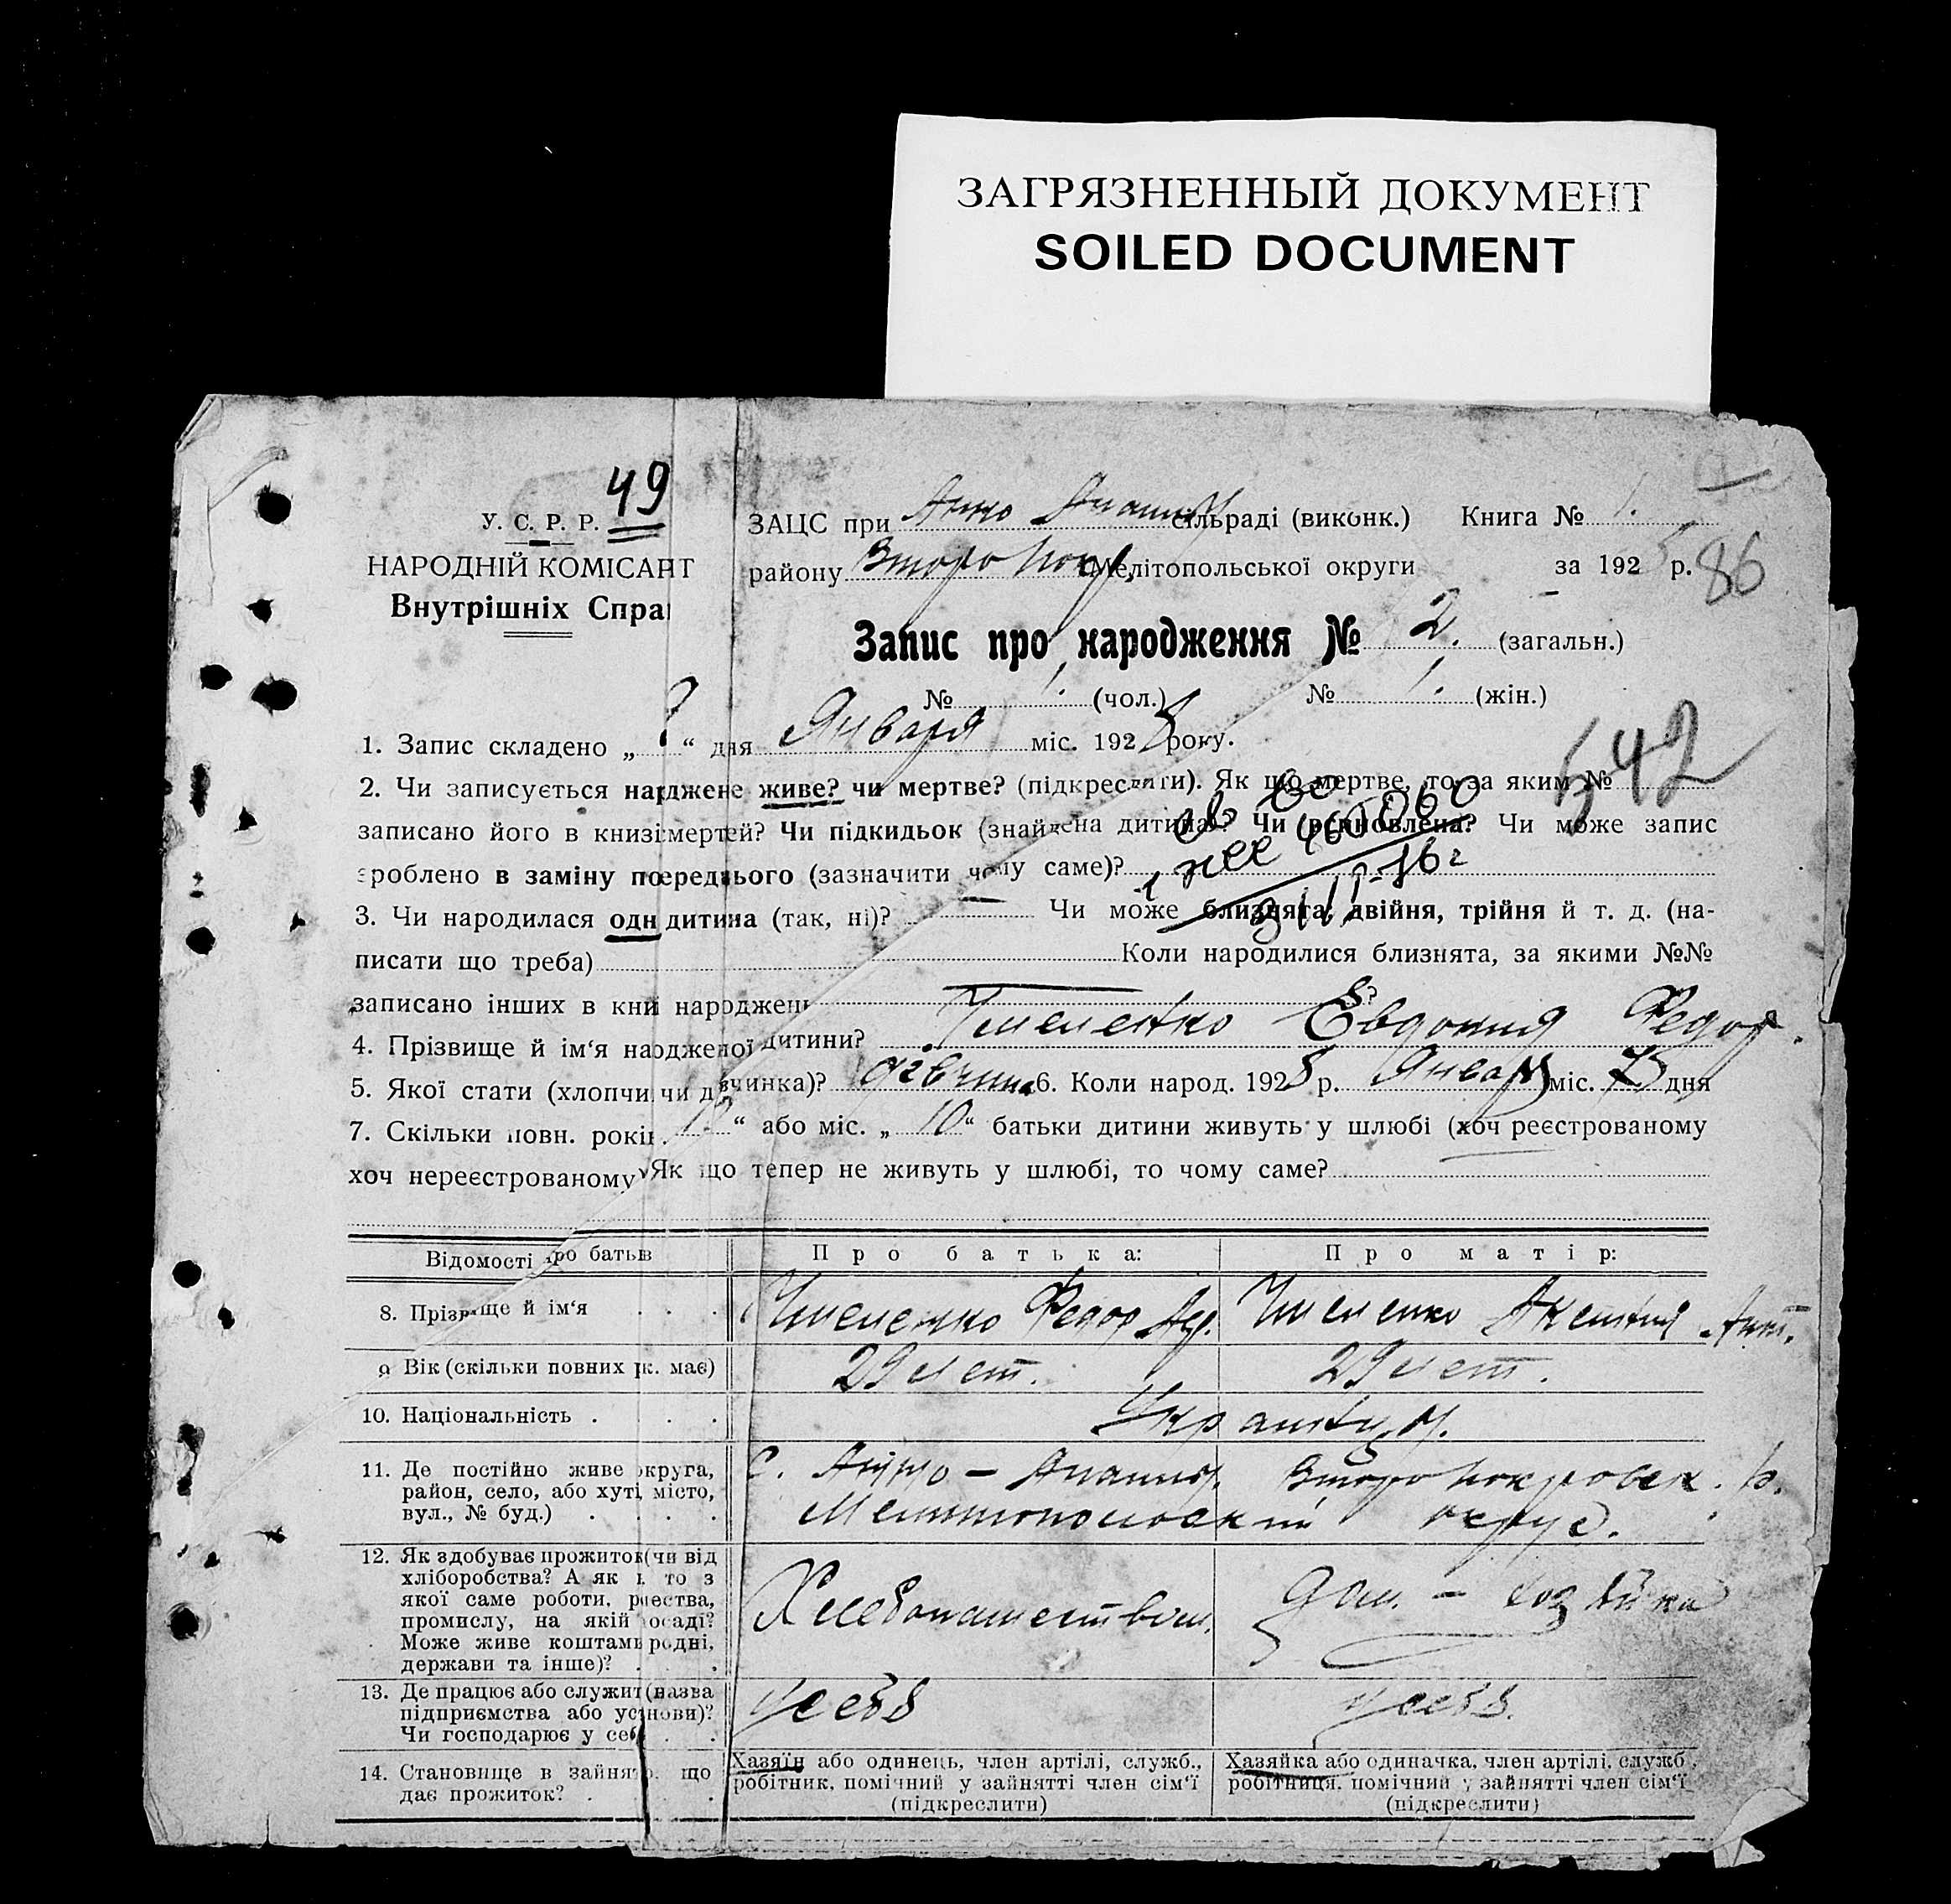 ЗАГРЯЗНЕННЫЙ ДОКУМЕНТ
SOILED DOCUMENT
49
У. С. Р. Р.
НАРОДНІЙ КОМІСАРІТ
Внутрішніх Спра
ЗАЦС при Анно сільраді (виконк.) Книга № 1.
району Второ Покр. Мелітопольської округи за 192 р. 86
Запис про народження № 2. (загальн.)
№ 1. (чол.) № 1. (жін.)
1. Запис складено „ “ дня Января міс. 1928 року.
542
2. Чи записується нарджене живе? чи мертве? (підкреслити). Як що мертве, то за яким №
записано його в книзі смертей? Чи підкидьок (знайдена дитина)? Чи встановлена? Чи може запис
зроблено в заміну попереднього (зазначити чому саме)?
3. Чи народилася одн дитина (так, ні)? Чи може близнята, двійня, трійня й т. д. (на-
писати що треба) Коли народилися близнята, за якими №№
записано інших в кни народжень
4. Прізвище й ім'я народженої дитини? Евдокия Федор.
5. Якої стати (хлопчи чи дівчинка)? дівчина 6. Коли народ. 1928 р. Января міс. дня
7. Скільки повн. років “ або міс. „ 10 “ батьки дитини живуть у шлюбі (хоч реєстрованому
хоч нереєстрованому Як що тепер не живуть у шлюбі, то чому саме?
Відомості про батьків Про батька: Про матір:
8. Прізвище й ім'я Федор
9 Вік (скільки повних рк. має) 29 лет. 29 лет.
10. Національність
11. Де постійно живе округа, район, село, або хуті, місто, вул., № буд.) с. Анно – Второ Покровск. р.
Мелитопольский округ.
12. Як здобуває прожиток (чи від хліборобства? А як н то з якої саме роботи, рмества, промислу, на якій посаді? Може живе коштами родні, держави та інше)? Хлебопашеством. Дом. - хозяйка
13. Де працює або служит (назва підприємства або установи)? Чи господарює у себ у себя у себя.
14. Становище в занято. що дає прожиток? Хазяїн або одинець, член артілі, служб., робітник, помічний у зайнятті член сім'ї (підкреслити) Хазяйка або одиначка, член артілі, служб., робітниця, помічний у зайнятті член сім'ї (підкреслити)